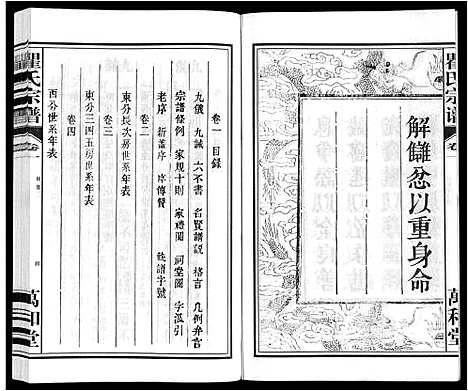 瞿氏宗谱
卷一
萬和堂
解讎忿以重身命
卷一 目录
九儀 九誡 六不書 名賢譜說 格言 凡例弁言
宗譜條例 家規十則 家禮圖 祠堂圖 字派引
老序 新舊序 序傳贊 姓諸字號
卷二
東分長次房世系年表
卷三
東分三四五房世系年表
卷四
西分世系年表
瞿氏宗谱
卷一
萬和堂